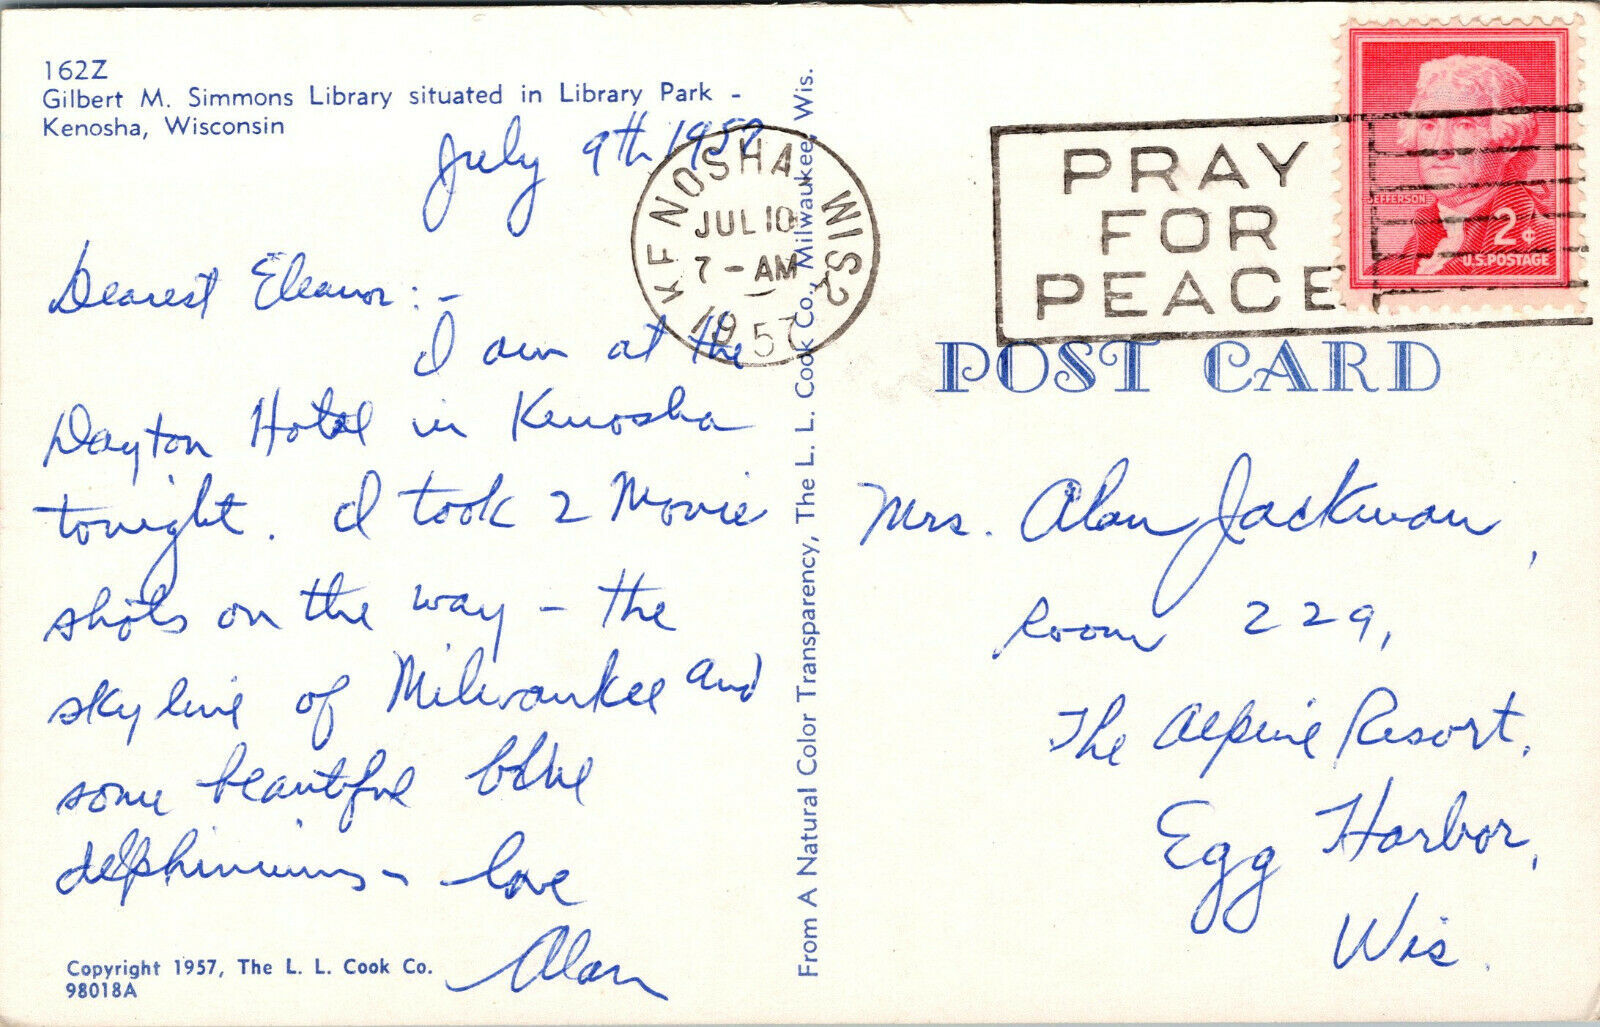 162Z
Gilbert M. Simmons Library situated in Library Park -
Kenosha, Wisconsin
July 9th 1957
Dearest Eleanor:-
I am at the
Dayton Hotel in Kenosha
tonight. I took 2 Movie
shots on the way - the
skyline of Milwaukee and
some beautiful blue
delphiniums - love
Alan
Copyright 1957, The L. L. Cook Co.
98018A
From A Natural Color Transparency, The L. L. Cook Co., Milwaukee, Wis.
KENOSHA, WIS.
JUL 10
7 - AM
1957
PRAY
FOR
PEACE
JEFFERSON
2¢
U.S. POSTAGE
POST CARD
Mrs. Alan Jackman,
Room 229,
The Alpine Resort,
Egg Harbor,
Wis.